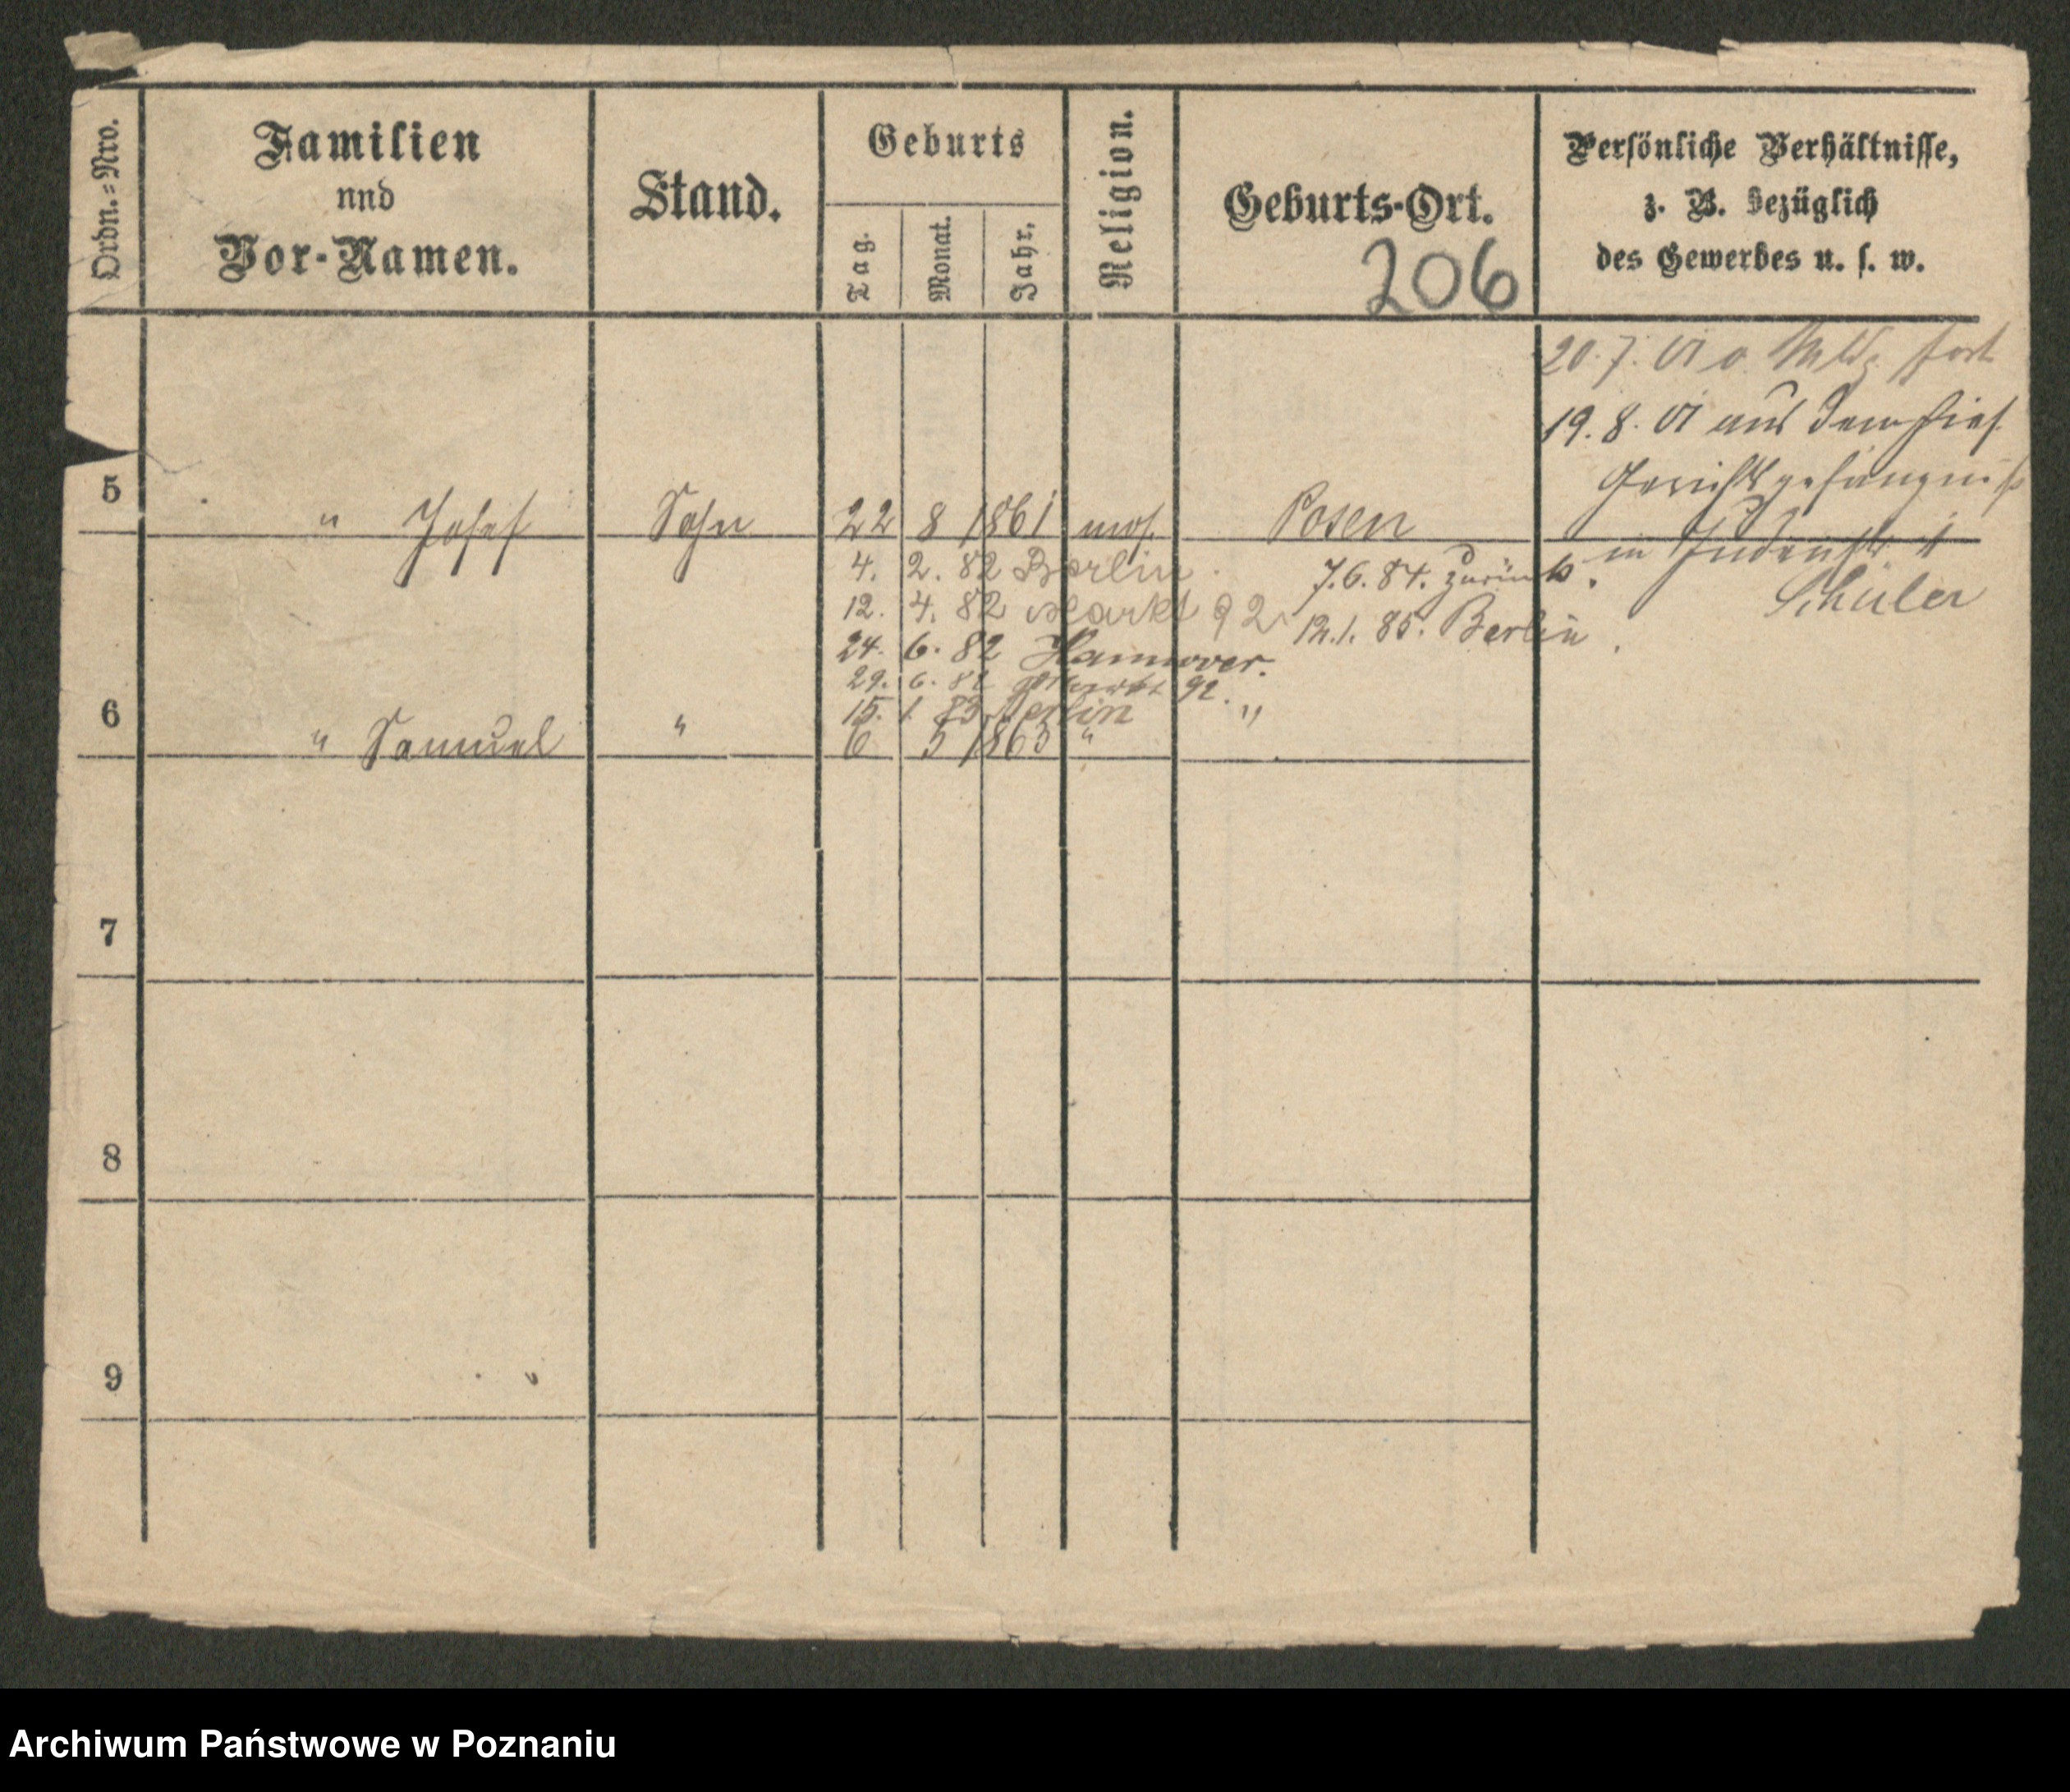 Ordn.=Nro.
Familien
nnd
Vor-Namen.
Stand.
Geburts
Tag.
Monat.
Jahr.
Religion.
Geburts-Ort.
206
Persönliche Verhältnisse,
z. B. bezüglich
des Gewerbes u. s. w.
20. 7. 01 o. fort
19. 8. 01 aus dem hies.
Gerichtsgefängniß
in Judenstr
5 " Josef Sohn 22 8 1861 mos. Posen
Schüler
4. 2. 82 Berlin.
7. 6. 84. zurück.
12. 4. 82 Markt 92
12. 1. 85. Berlin.
24. 6. 82 Hannover.
29. 6. 82 Markt 92.
15. 1. 83 Berlin
6 " Samuel " 6 5 1863 " "
7
8
9
Archiwum Państwowe w Poznaniu